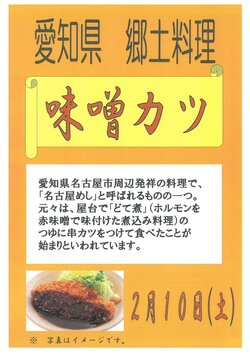 愛知県　郷土料理
味噌カツ
愛知県名古屋市周辺発祥の料理で、
「名古屋めし」と呼ばれるものの一つ。
元々は、屋台で「どて煮」（ホルモンを
赤味噌で味付けた煮込み料理）の
つゆに串カツをつけて食べたことが
始まりといわれています。
2月10日(土)
※　写真はイメージです。